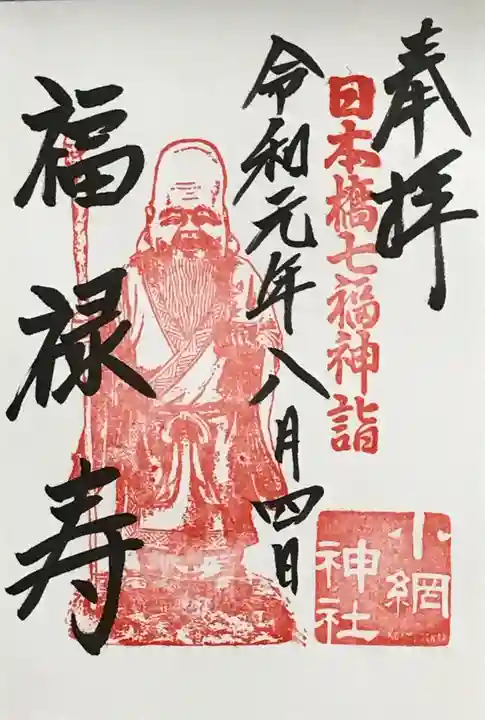 奉拝
日本橋七福神詣
小網
神社
令和元年八月四日
福禄寿